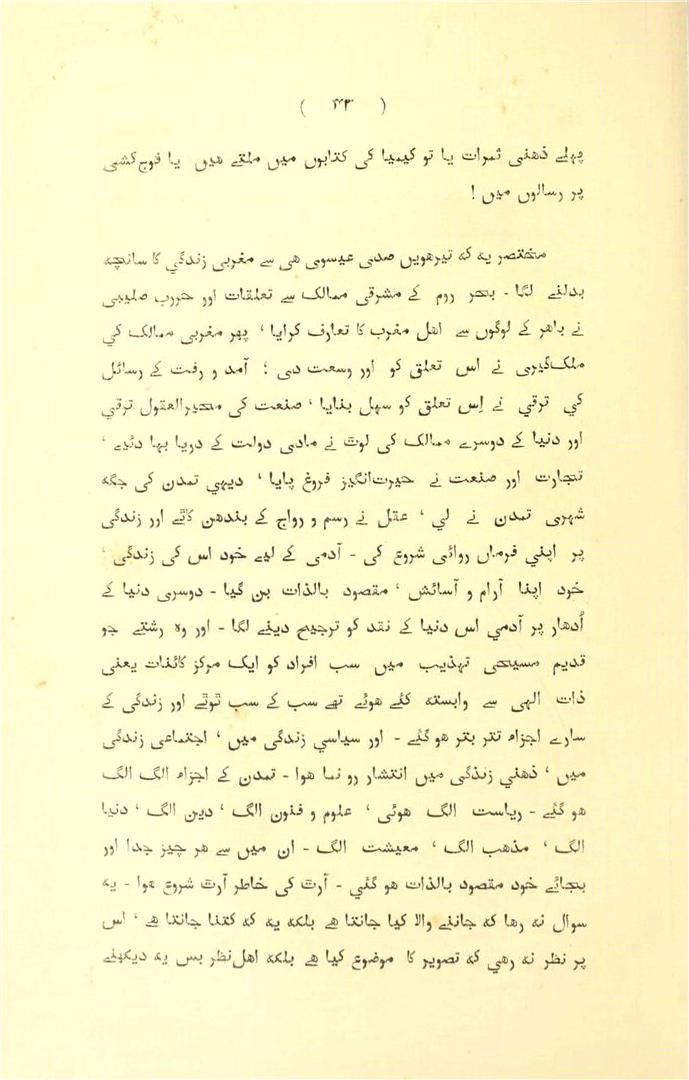 ( ۴۳ )
پہلے ذھنی ثمرات یا تو کیمیا کی کتابوں میں ملتے ھیں یا فوج کشی
پر رسالوں میں !
مختصر یہ کہ تیرھویں صدی عیسوی ھی سے مغربی زندگی کا سانچہ
بدلنے لگا - بحر روم کے مشرقی ممالک سے تعلقات اور حروب صلیبی
نے باھر کے لوگوں سے اھل مغرب کا تعارف کرایا ، پھر مغربی ممالک کی
ملک‌گیری نے اس تعلق کو اور وسعت دی ؛ آمد و رفت کے رسائل
کی ترقی نے اِس تعلق کو سہل بنایا ، صنعت کی محیرالعقول ترقی
اور دنیا کے دوسرے ممالک کی لوٹ نے مادی دولت کے دریا بہا دئیے ،
تجارت اور صنعت نے حیرت‌انگیز فروغ پایا ، دیہی تمدن کی جگہ
شہری تمدن نے لی ، عقل نے رسم و رواج کے بندھن کاٹے اور زندگی
پر اپنی فرماں روائی شروع کی - آدمی کے لیے خود اس کی زندگی ،
خود اپنا آرام و آسائش ، مقصود بالذات بن گیا - دوسری دنیا کے
اُدھار پر آدمی اس دنیا کے نقد کو ترجیح دینے لگا - اور وہ رشتے جو
قدیم مسیحی تہذیب میں سب افراد کو ایک مرکز کائنات یعنی
ذات الہی سے وابستہ کئے ھوئے تھے سب کے سب ٹوٹے اور زندگی کے
سارے اجزاء تتر بتر ھو گئے - اور سیاسی زندگی میں ، اجتماعی زندگی
میں ، ذھنی زندگی میں انتشار رو نما ھوا - تمدن کے اجزاء الگ الگ
ھو گئے - ریاست الگ ھوئی ، علوم و فنون الگ ، دین الگ ، دنیا
الگ ، مذھب الگ ، معیشت الگ - ان میں سے ھر چیز جدا اور
بجائے خود مقصود بالذات ھو گئی - آرٹ کی خاطر آرٹ شروع ھوا - یہ
سوال نہ رھا کہ جاننے والا کیا جانتا ھے بلکہ یہ کہ کتنا جانتا ھے ، اس
پر نظر نہ رھی کہ تصویر کا موضوع کیا ھے بلکہ اھل نظر بس یہ دیکھنے